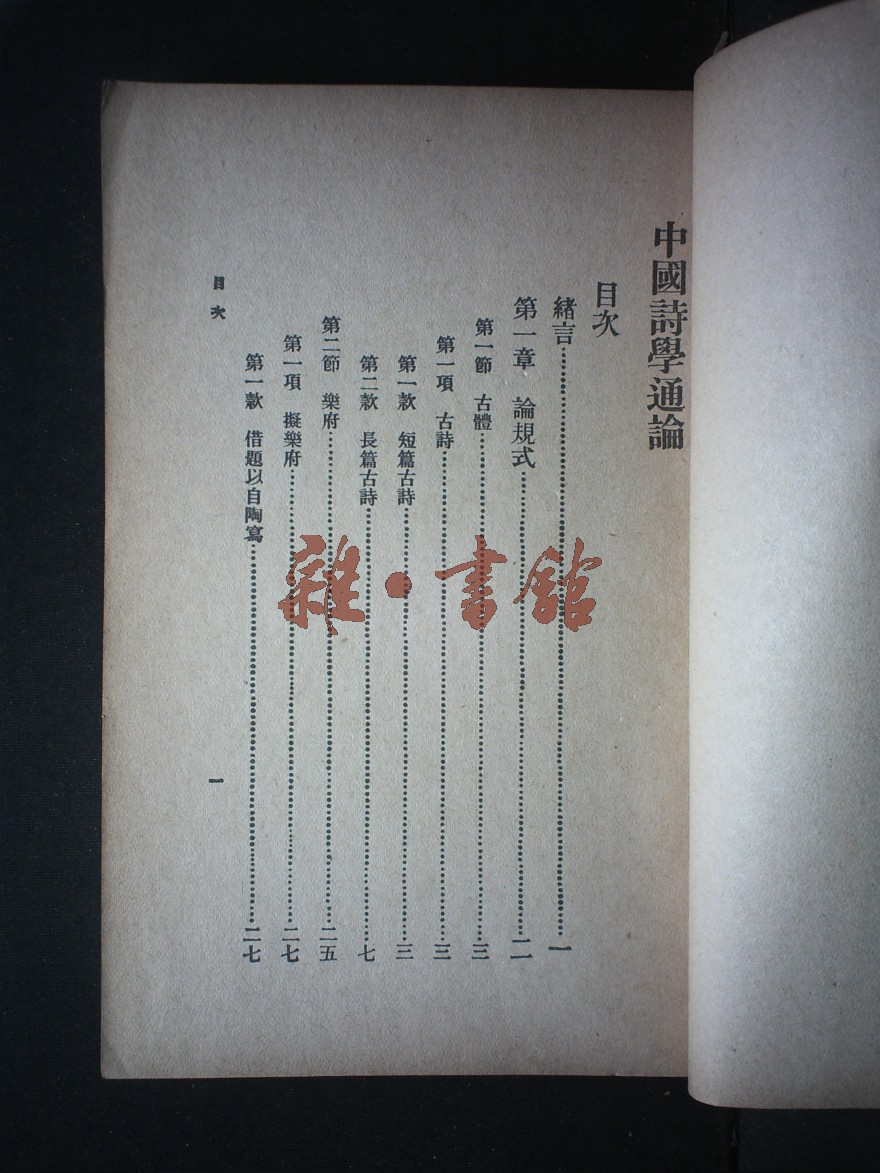 中國詩學通論
目次
緒言……一
第一章　論規式……二
第一節　古體……三
第一項　古詩……三
第一款　短篇古詩……三
第二款　長篇古詩……七
第二節　樂府……二五
第一項　擬樂府……二七
第一款　借題以自陶寫……二七
目次
一
雜·書館